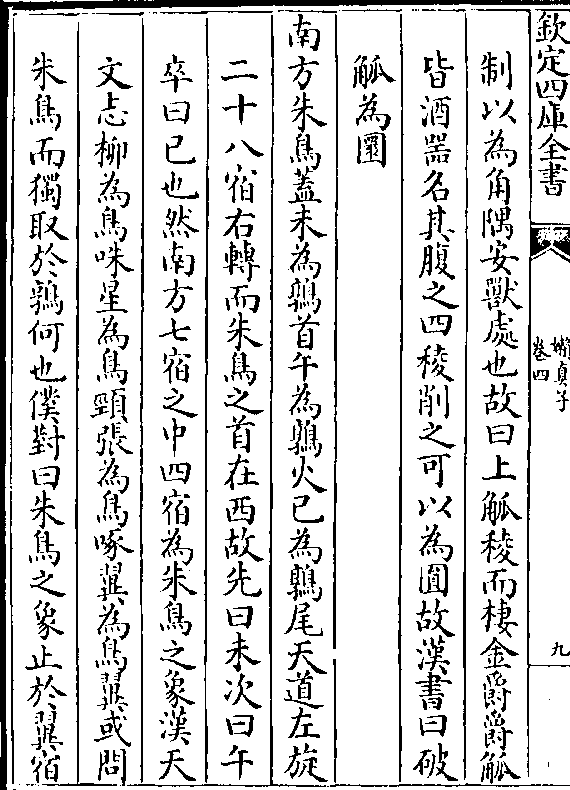 欽定四庫全書
嬾真子
卷四
九
制以為角隅安獸處也故曰上觚稜而棲金爵爵觚
皆酒器名其腹之四稜削之可以為圓故漢書曰破
觚為圜
南方朱鳥蓋未為鶉首午為鶉火巳為鶉尾天道左旋
二十八宿右轉而朱鳥之首在西故先曰未次曰午
卒曰巳也然南方七宿之中四宿為朱鳥之象漢天
文志柳為鳥咮星為鳥頸張為鳥啄翼為鳥翼或問
朱鳥而獨取於鶉何也僕對曰朱鳥之象止於翼宿